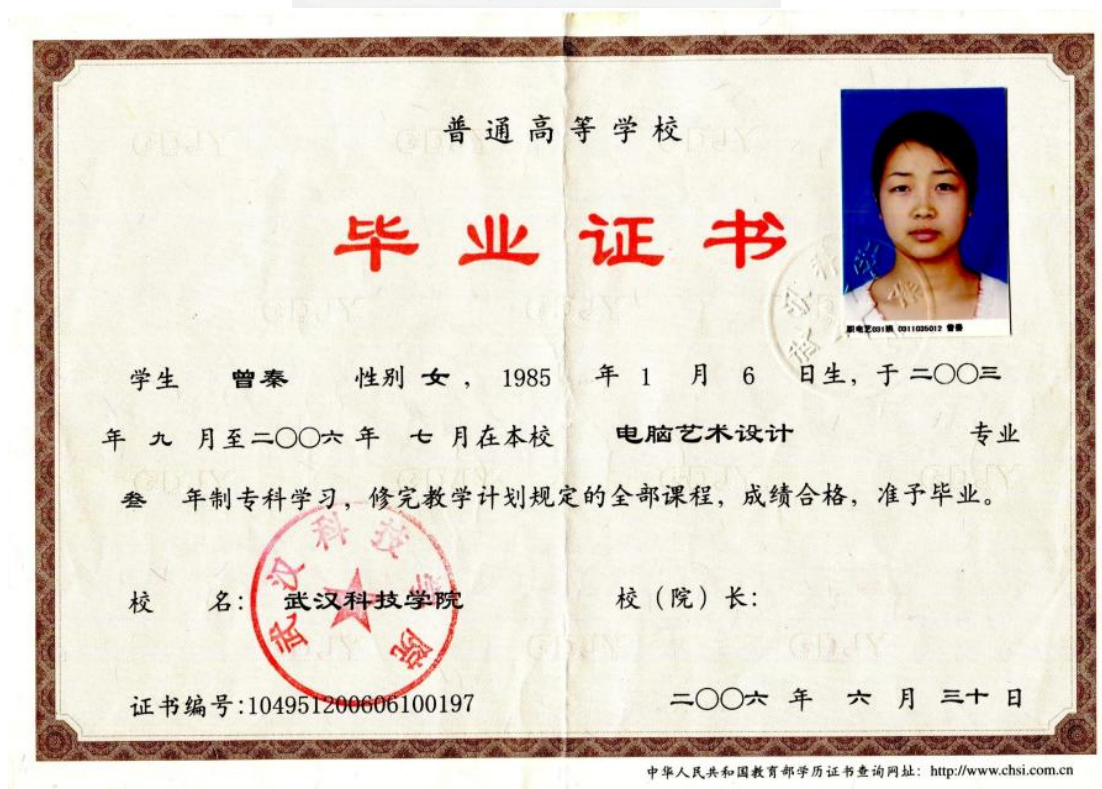 普通高等学校
毕业证书
职电艺031班 0311035012 曾秦
学生 曾秦 性别 女，1985 年 1 月 6 日生，于二〇〇三
年 九 月至二〇〇六 年 七 月在本校 电脑艺术设计 专业
叁 年制专科学习，修完教学计划规定的全部课程，成绩合格，准予毕业。
武汉科技学院
校 名：武汉科技学院 校（院）长：
证书编号:104951200606100197 二〇〇六 年 六 月 三十 日
中华人民共和国教育部学历证书查询网址：http://www.chsi.com.cn